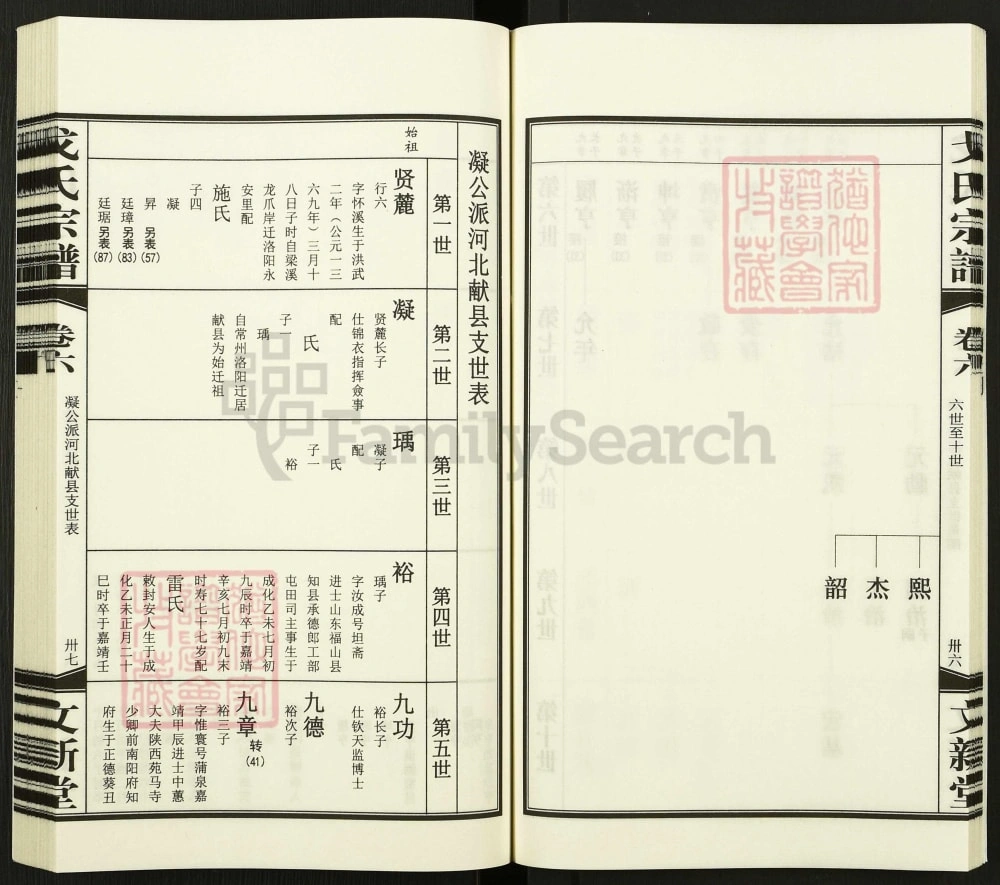 戈氏宗谱
卷六
六世至十世
卅六
文新堂
熙
杰
韶
凝公派河北献县支世表
第一世
第二世
第三世
第四世
第五世
始祖
贤麓
行六
字怀溪生于洪武
二年（公元一三
六九年）三月十
八日子时自梁溪
龙爪岸迁洛阳永
安里配
施氏
子四
凝
昇 另表(57)
廷璋 另表(83)
廷琚 另表(87)
凝
贤麓长子
仕锦衣指挥佥事
配
氏
子一
瑀
自常州洛阳迁居
献县为始迁祖
瑀
凝子
配
氏
子一
裕
裕
瑀子
字汝成号坦斋
进士山东福山县
知县承德郎工部
屯田司主事生于
成化乙未七月初
九辰时卒于嘉靖
辛亥七月初九未
时寿七十七岁配
雷氏
敕封安人生于成
化乙未正月二十
巳时卒于嘉靖壬
九功
裕长子
仕钦天监博士
九德
裕次子
九章 转(41)
裕三子
字惟寰号蒲泉嘉
靖甲辰进士中蕙
大夫陕西苑马寺
少卿前南阳府知
府生于正德葵丑
戈氏宗谱
卷六
凝公派河北献县支世表
卅七
文新堂
FamilySearch